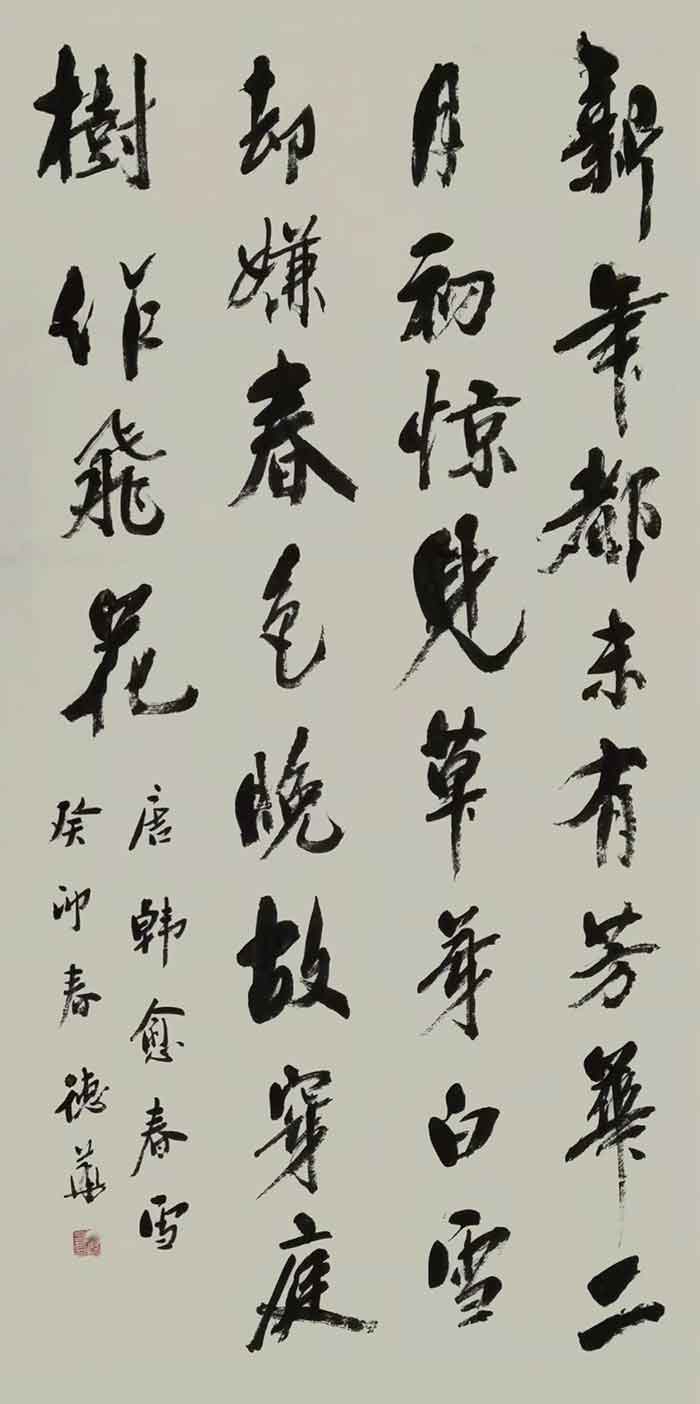 新年都未有芳華二
月初惊見草芽白雪
却嫌春色晚故穿庭
樹作飛花
唐韩愈春雪
癸卯春德華